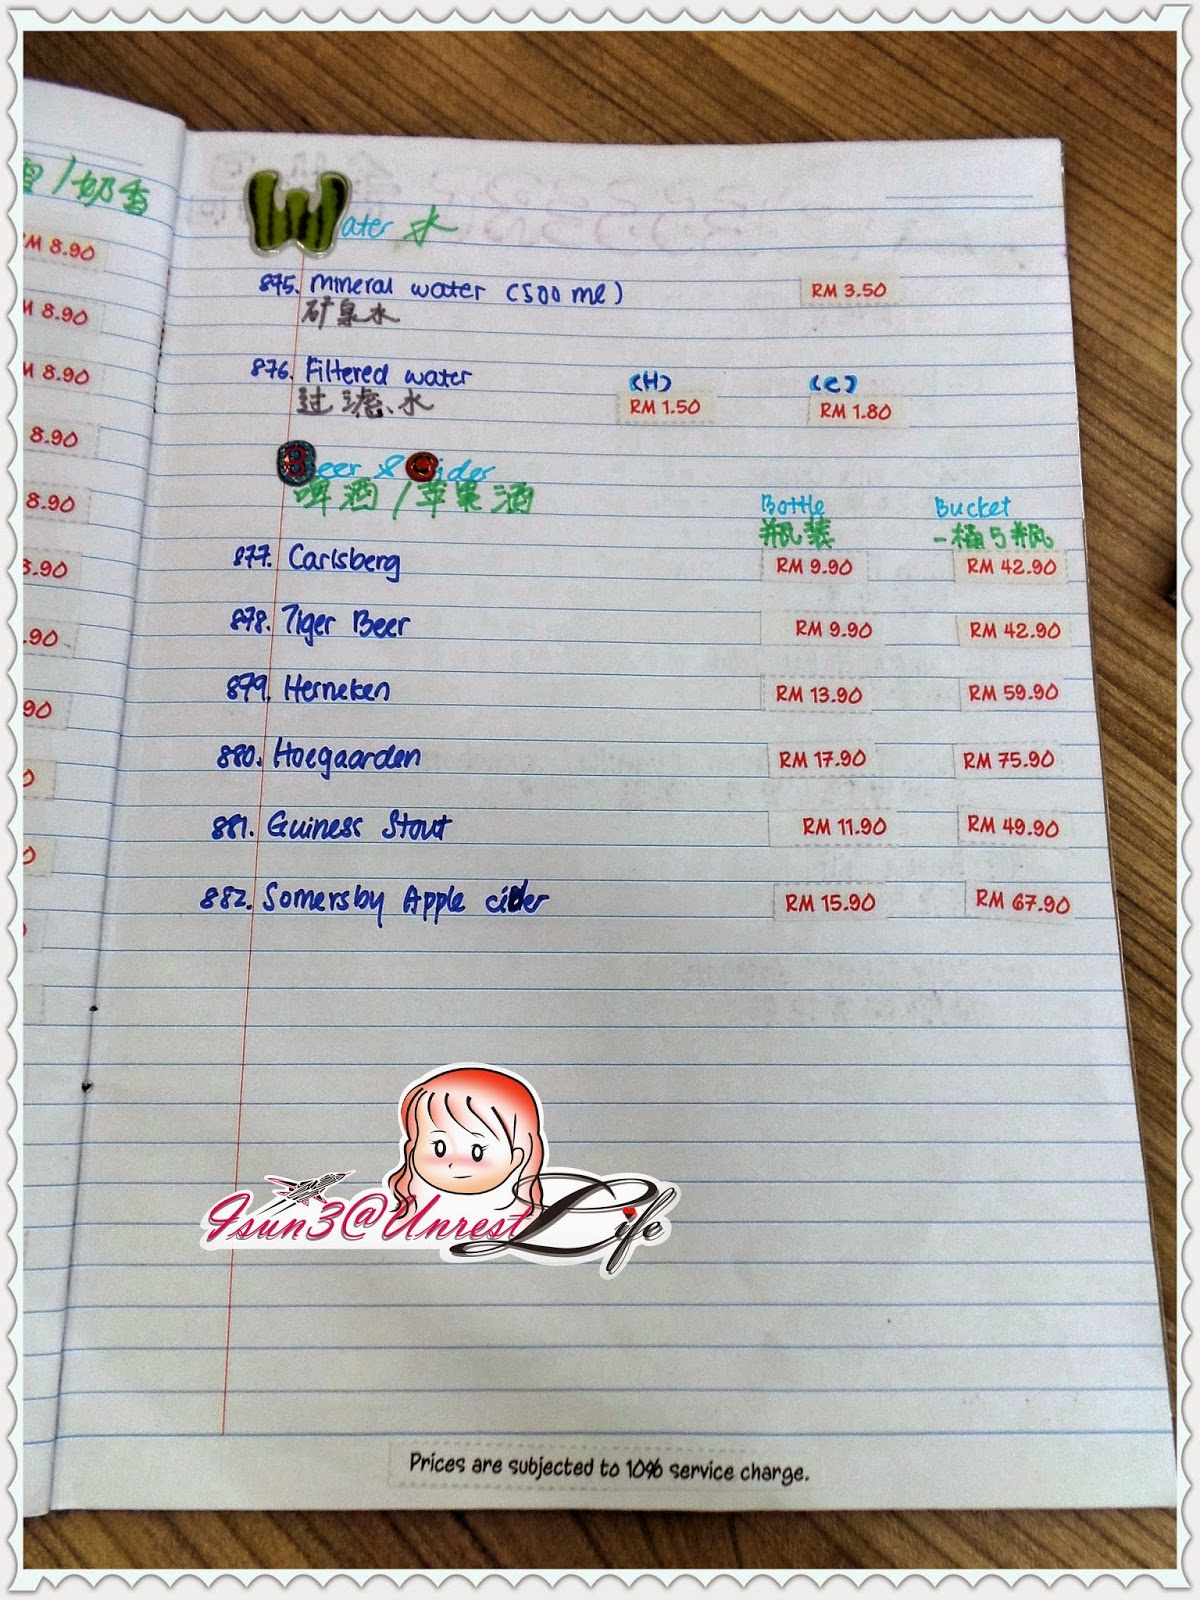 /奶香
RM 8.90
8.90
8.90
8.90
8.90
.90
.90
90
Water 水
875. Mineral water (500 ml) RM 3.50
矿泉水
876. Filtered water (H) (C)
过滤水 RM 1.50 RM 1.80
Beer & Cider
啤酒/苹果酒 Bottle Bucket
瓶装 一桶5瓶
877. Carlsberg RM 9.90 RM 42.90
878. Tiger Beer RM 9.90 RM 42.90
879. Heineken RM 13.90 RM 59.90
880. Hoegaarden RM 17.90 RM 75.90
881. Guiness Stout RM 11.90 RM 49.90
882. Somersby Apple cider RM 15.90 RM 67.90
Isun3@Unrest Life
Prices are subjected to 10% service charge.